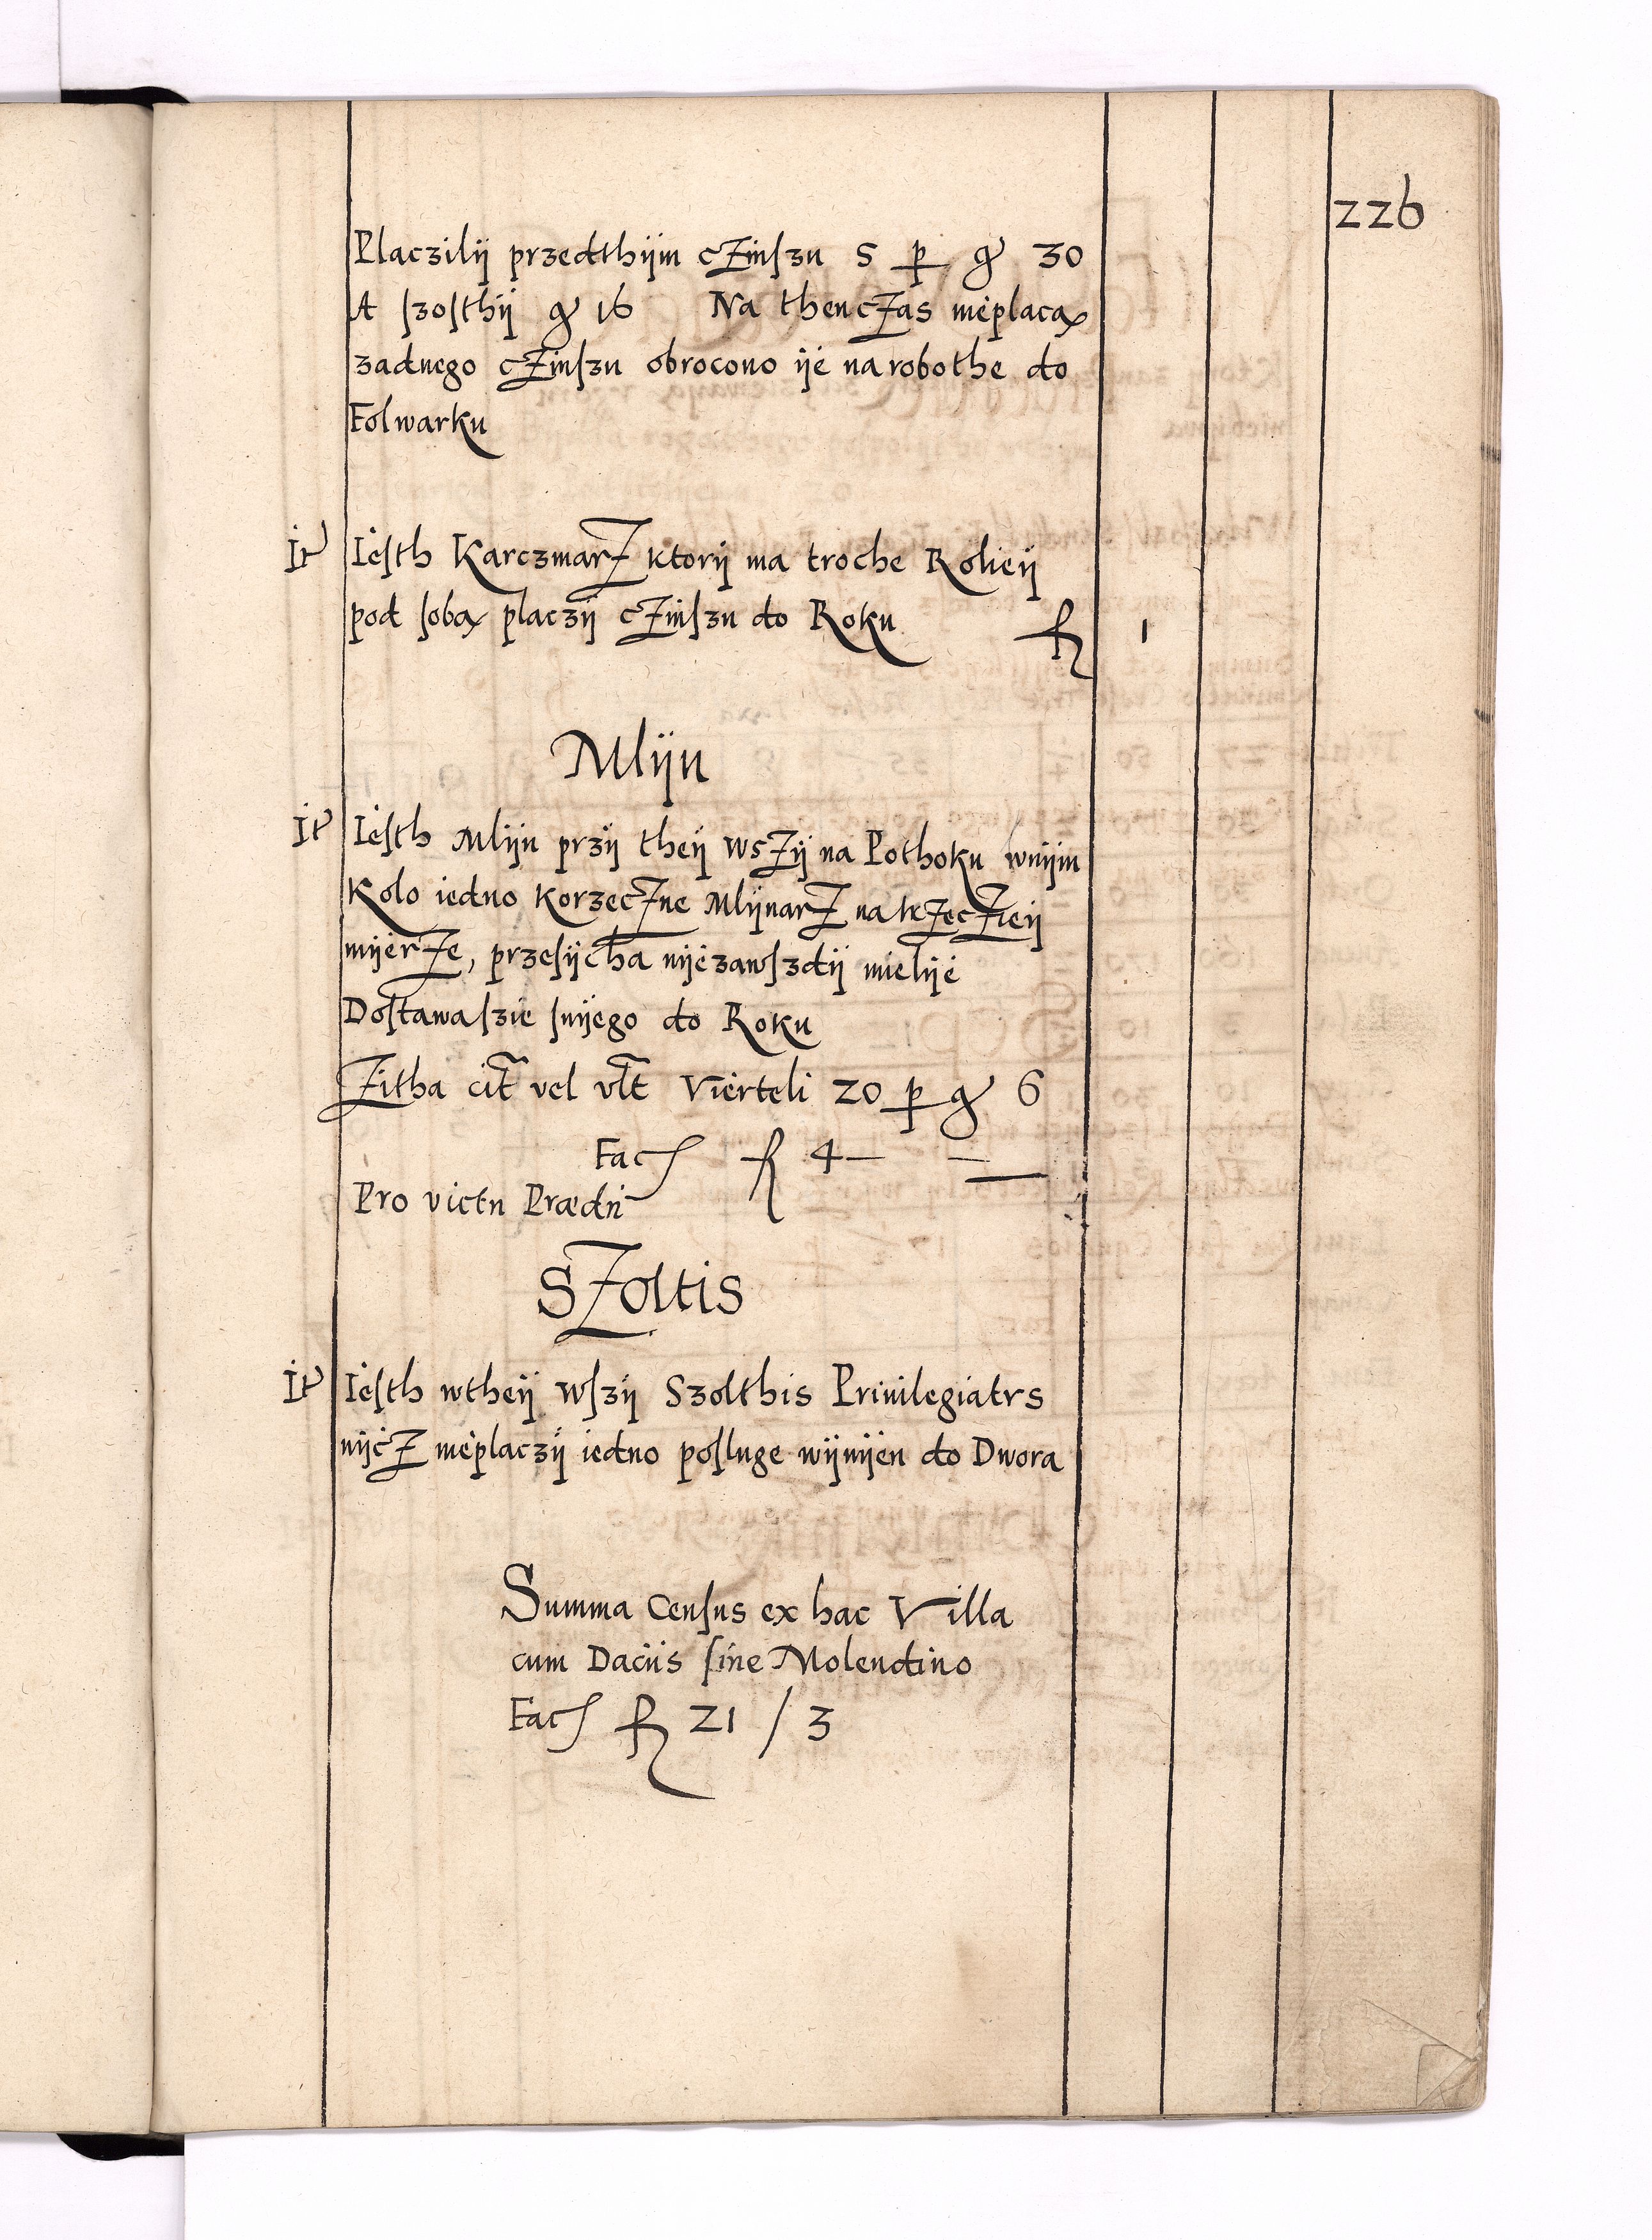 226
Placzilÿ przedthÿm cZinſzu 5 p gr 30
A ſzoſthÿ gr 16 Na thencZas nieplacą
zadnego cZinſzu obrocono ÿe na robothe do
Folwarku
It Ieſth KarczmarZ ktorÿ ma troche Rolieÿ
pod ſobą placzÿ cZinſzu do Roku f 1
Mlÿn
It Ieſth Mlÿn przÿ theÿ WsZÿ na Pothoku wnÿm
Kolo iedno KorzecZne MlÿnarZ na trZecZieÿ
mÿerZe, przeſÿcha nÿezawſzdÿ mielÿe
Doſtawa ſzie ſnÿego do Roku
Zitha cit vel vlt Vierteli 20 p gr 6
Fac f 4 — —
Pro victu Prædii
SZoltis
It Ieſth wtheÿ Wſzÿ Szolthis Priuilegiatrs
nÿcZ nieplaczÿ iedno poſluge wÿnÿen do Dwora
Summa Cenſus ex hac Villa
cum Daciis ſine Molendino
Fac f 21 / 3